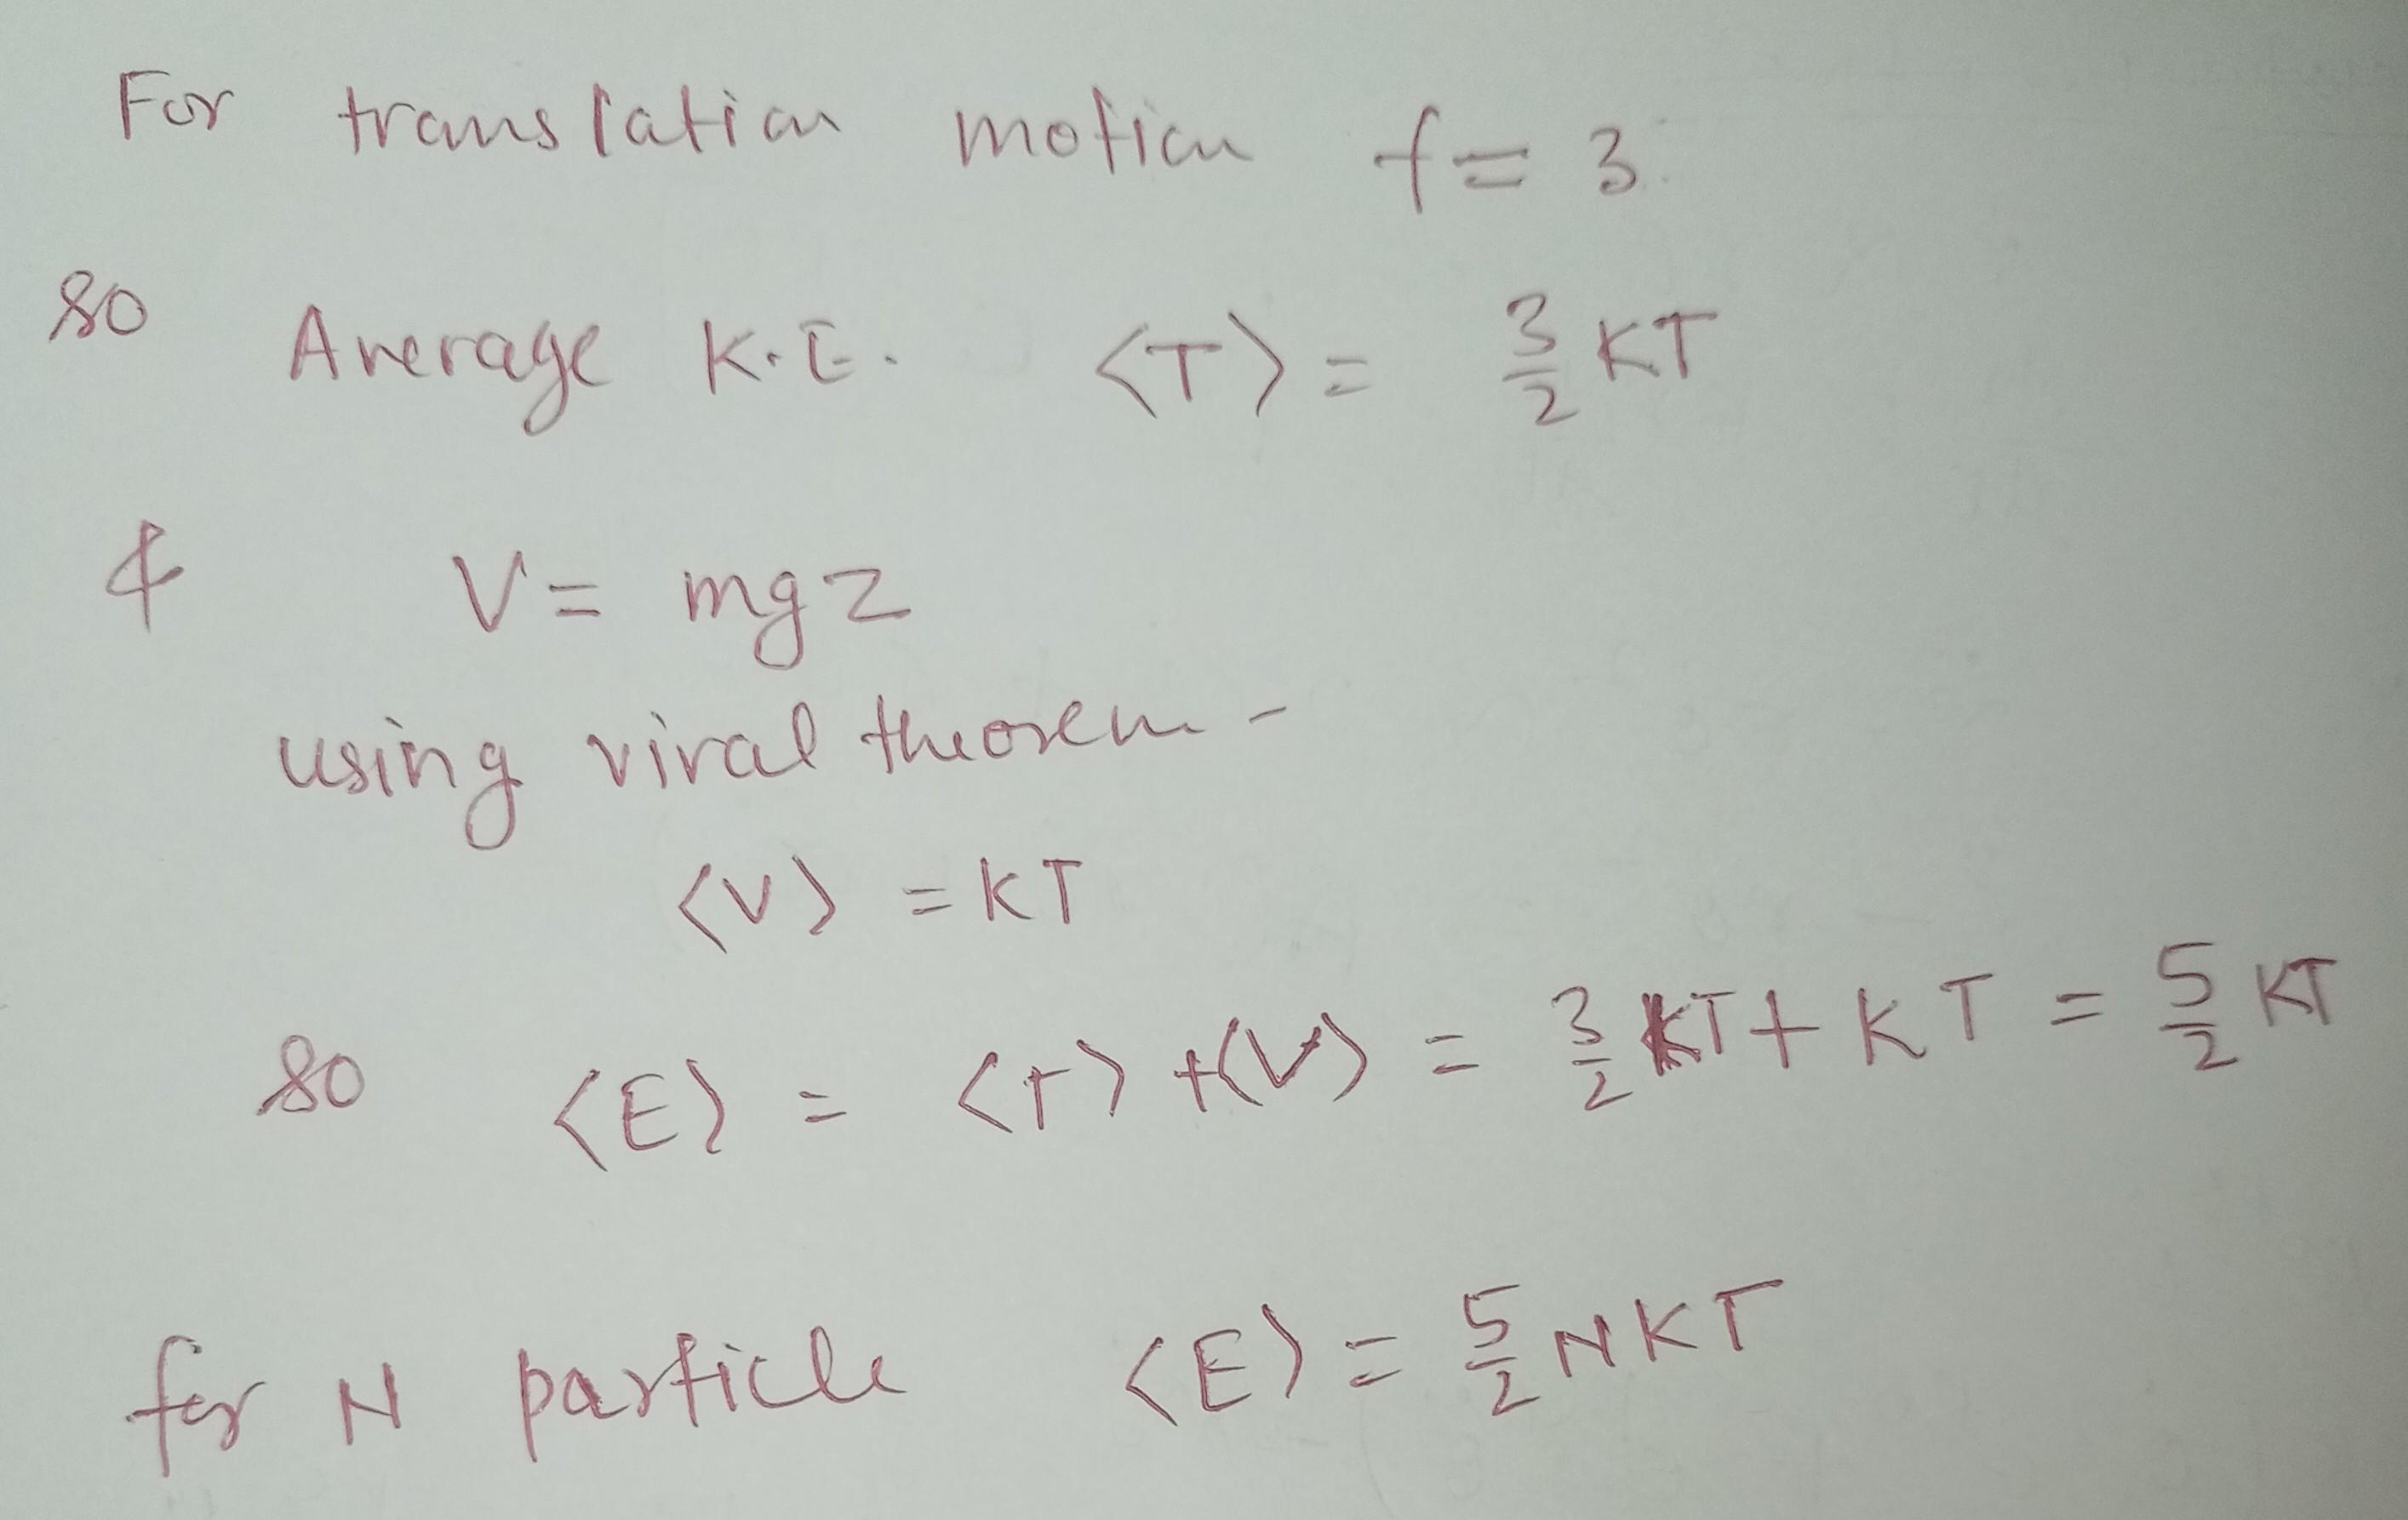 For translation motion f = 3
so Average K.E. <T> = 3/2 KT
& V = mgz
using viral theorem -
<V> = KT
so <E> = <T> + <V> = 3/2 KT + KT = 5/2 KT
for N particle <E> = 5/2 NKT